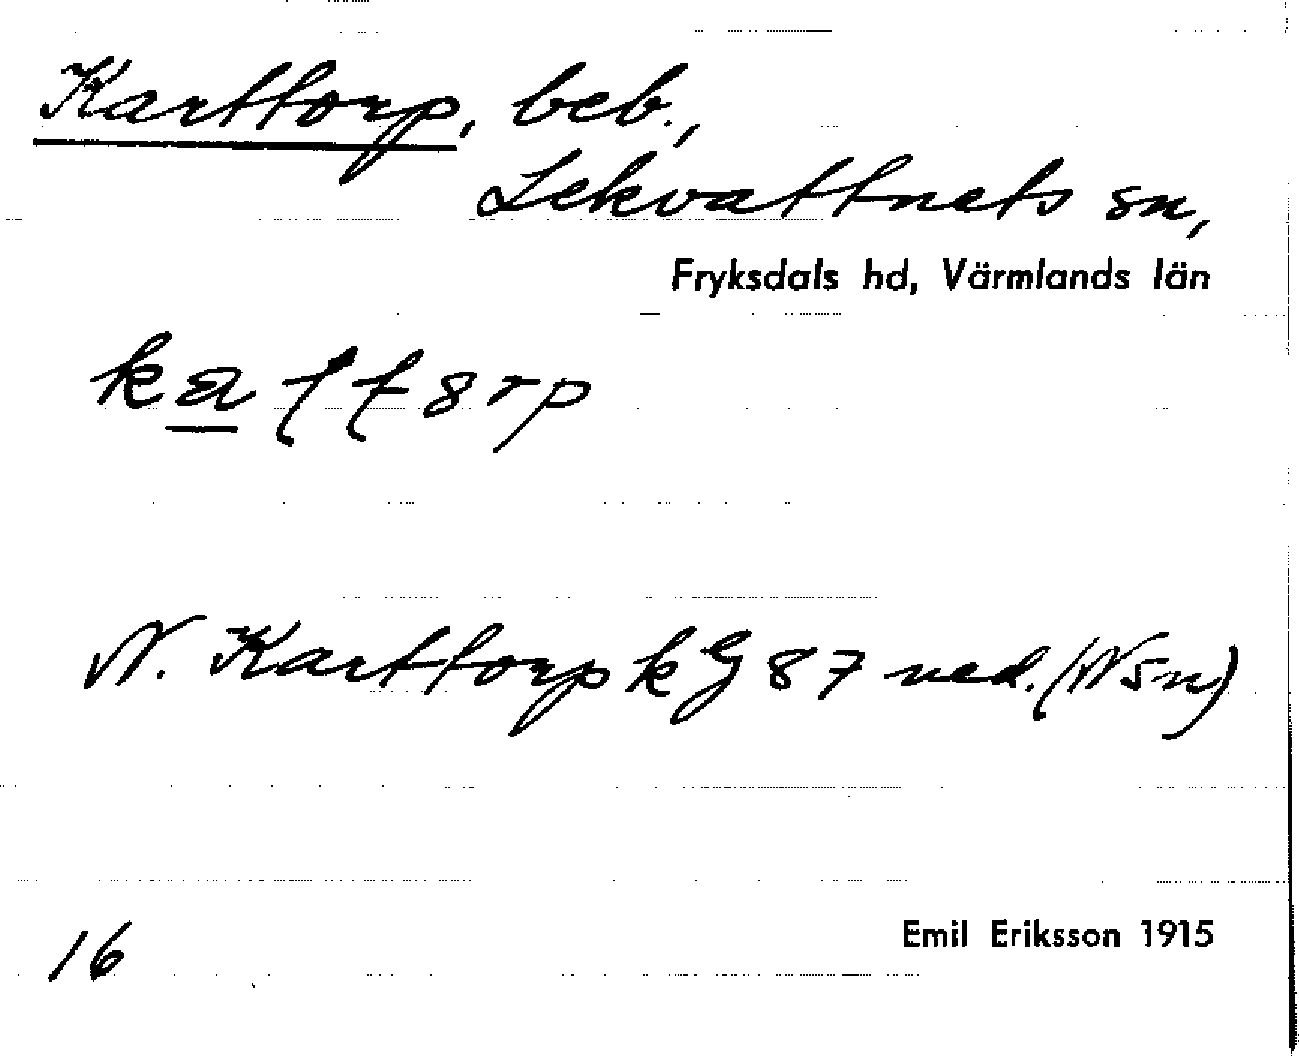 Karttorp, beb.,
Lekvattnets sn,
Fryksdals hd, Värmlands län
N. Karttorp k G 87 ned. (N5n)
16
Emil Eriksson 1915